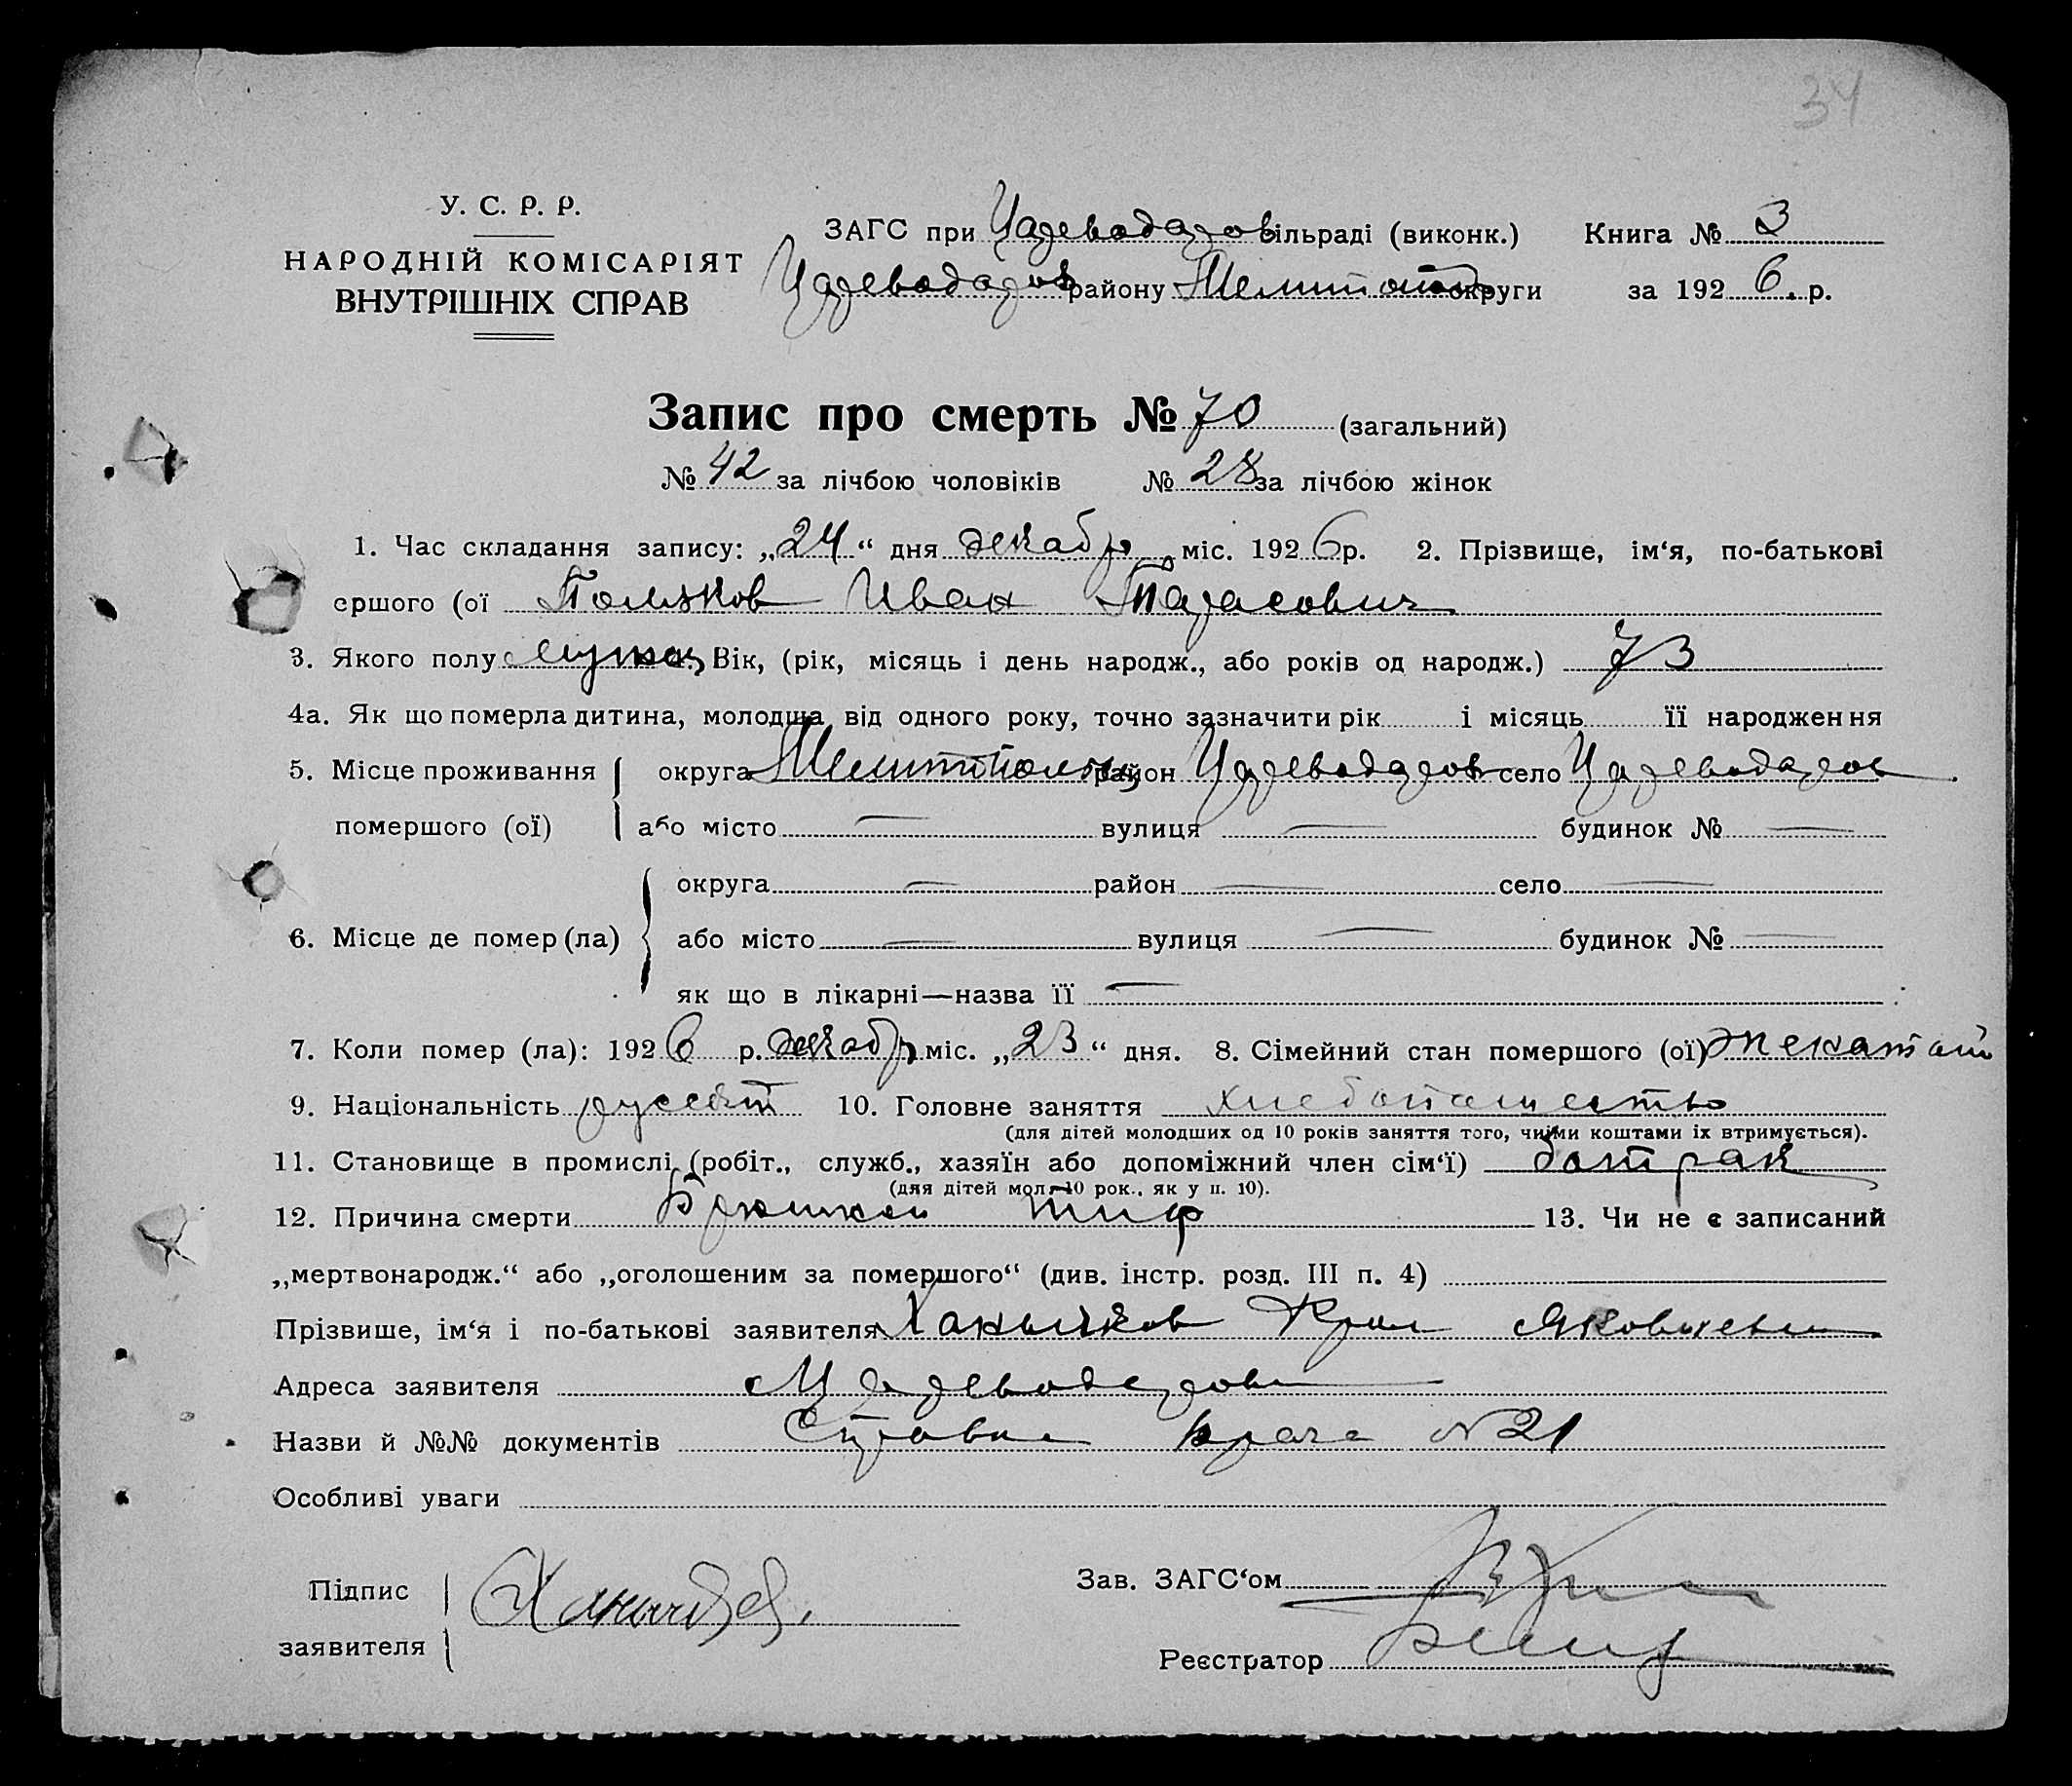 34
У. С. Р. Р.
НАРОДНІЙ КОМІСАРІЯТ
ВНУТРІШНІХ СПРАВ
ЗАГС при Цареводаров сільраді (виконк.) Книга № 3
Цареводаров району Мелитоп округи за 1926 р.
Запис про смерть № 70 (загальний)
№ 42 за лічбою чоловіків № 28 за лічбою жінок
1. Час складання запису: „24“ дня декабр міс. 1926 р. 2. Прізвище, ім‘я, по-батькові
ершого (ої Поляков Иван Тарасович
3. Якого полу Вік, (рік, місяць і день народж., або років од народж.) 73
4а. Як що померла дитина, молодша від одного року, точно зазначити рік і місяць її народження
5. Місце проживання округа район Цареводаров село Цареводаров
помершого (ої) або місто — вулиця — будинок № —
округа — район — село —
6. Місце де помер (ла) або місто — вулиця — будинок № —
як що в лікарні—назва її —
7. Коли помер (ла): 1926 р. декабр міс. „23“ дня. 8. Сімейний стан помершого (ої) женатый
9. Національність 10. Головне заняття хлебопашество
(для дітей молодших од 10 років заняття того, чиїми коштами їх втримується).
11. Становище в промислі (робіт., служб., хазяїн або допоміжний член сім‘ї) батрак
(для дітей мол. 10 рок., як у п. 10).
12. Причина смерти тиф 13. Чи не є записаний
„мертвонародж.“ або „оголошеним за помершого“ (див. інстр. розд. III п. 4)
Прізвище, ім‘я і по-батькові заявителя Ханычков
Адреса заявителя Цареводаров
Назви й №№ документів Справка врача № 21
Особливі уваги
Підпис
заявителя
Зав. ЗАГС‘ом
Реєстратор